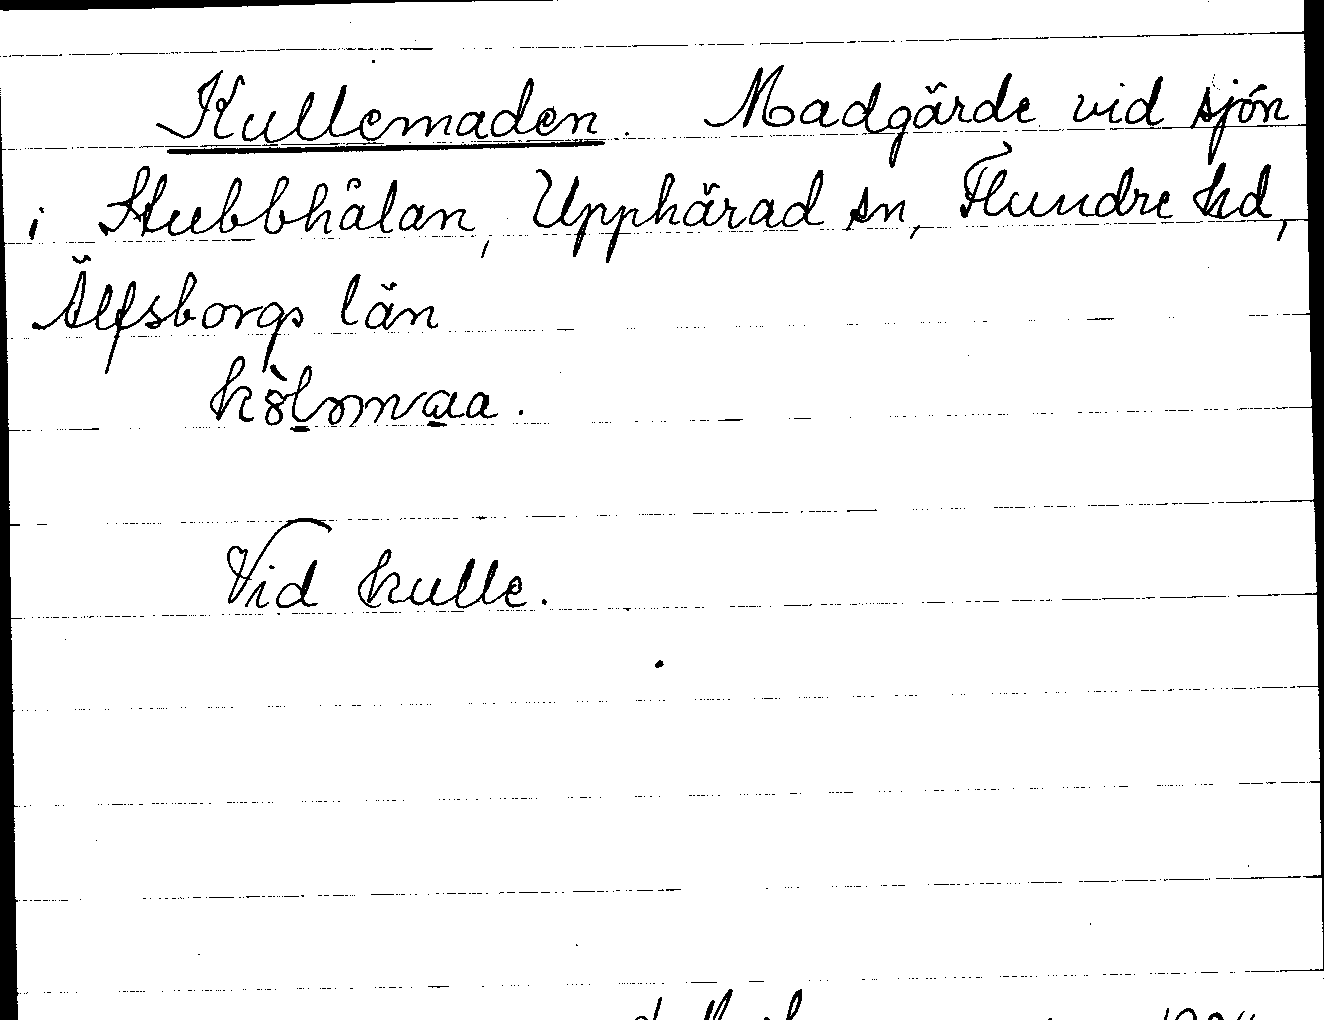 Kullemaden. Madgärde vid sjön
i Stubbhålan, Upphärad sn, Flundre hd,
Älfsborgs län
Vid kulle.